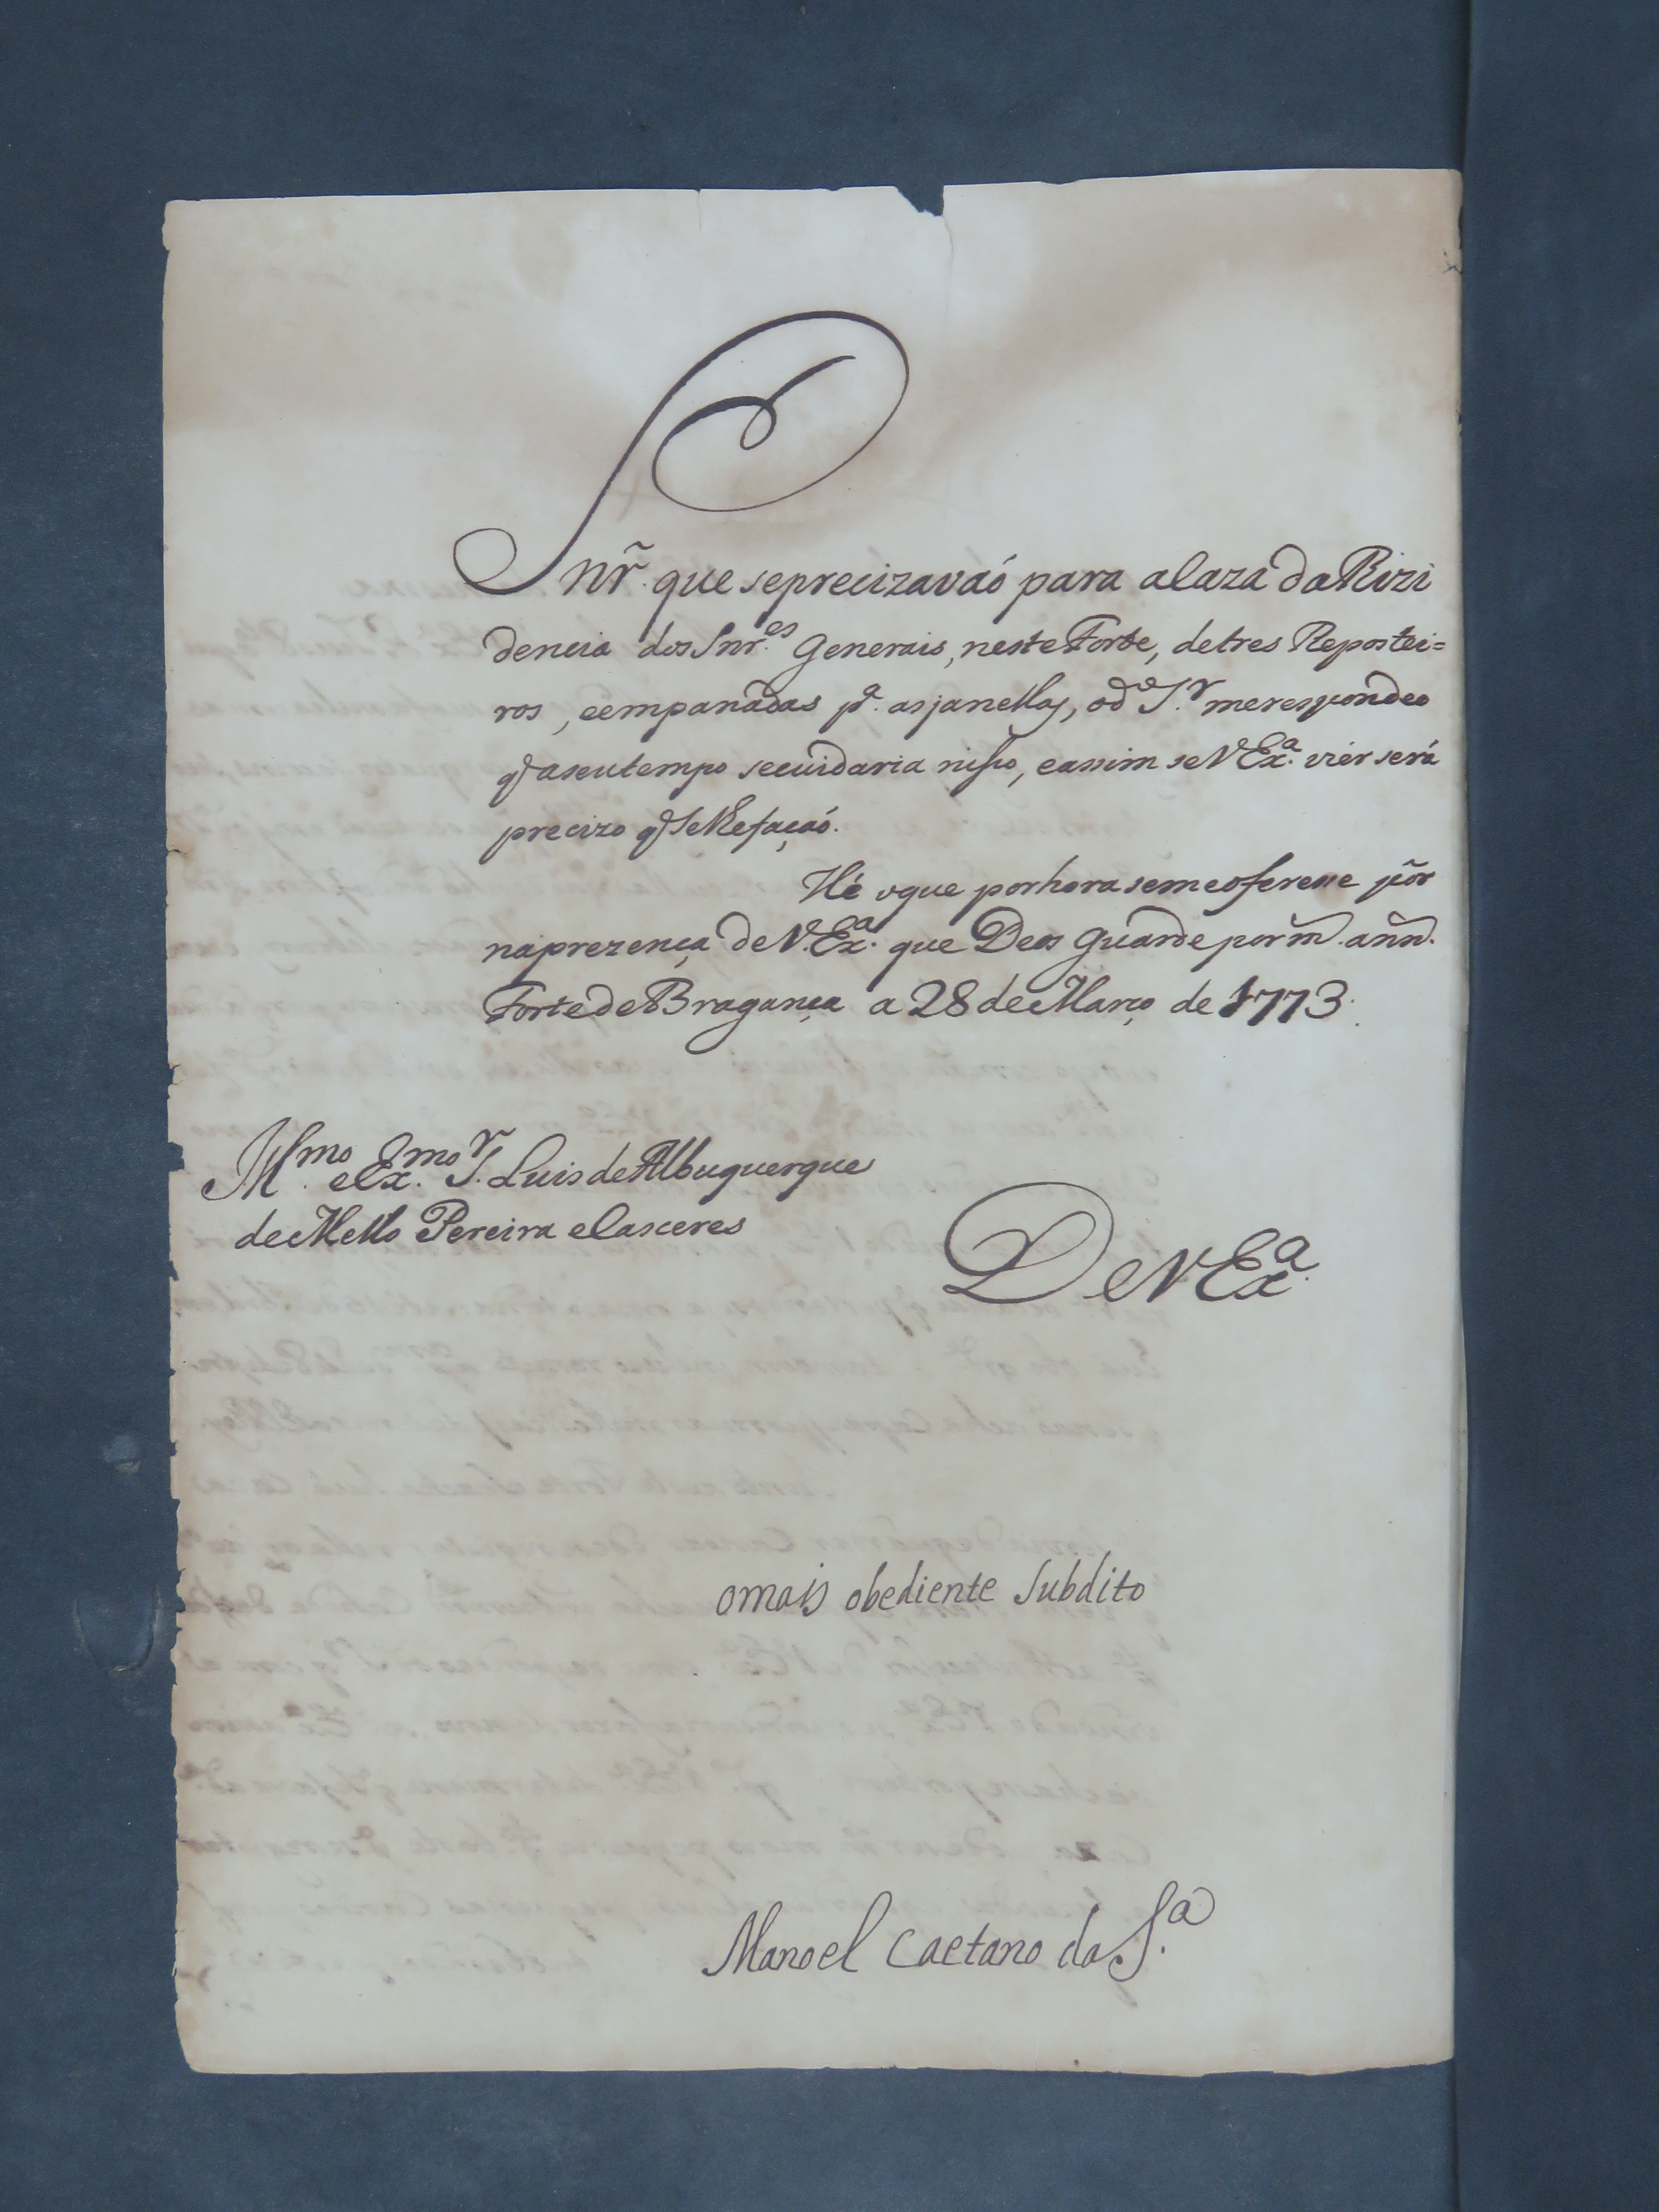 Snr̃. que seprecizavaó para aCaza daRizi
dencia dos Snr.es Generais, nesteForte, detres Repostei=
ros, eempanadas p.a asjanellas, od.o S.r merespondeo
q̃ aseutempo secuidaria nisso, eassim seVEx.a vier será
precizo q̃ SeRefaçaó.
Hé oque porhora semeoferesse pór
naprezença deV.Ex.a que Deos Guarde porm̃. ann̄.
FortedeBragança a 28 deMarço de 1773.
Ill.mo eEx.mo S.r Luis deAlbuquerque
deMello Pereira eCasceres
DeVEx.a
omais obediente Subdito
Manoel Caetano da S.a